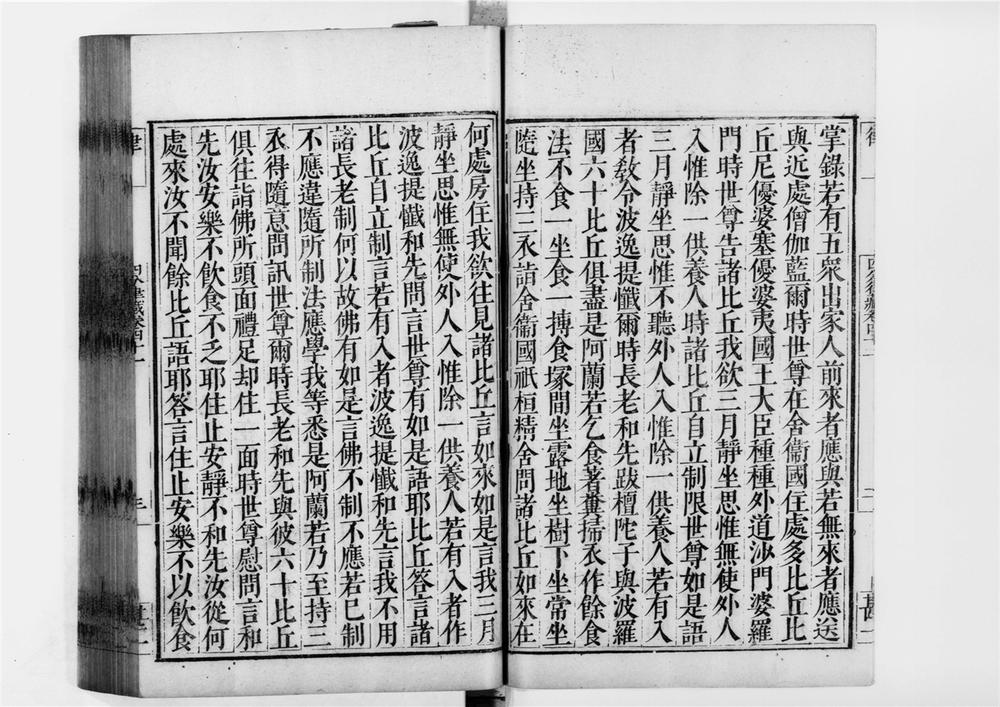 掌錄若有五衆出家人前來者應與若無來者應送
與近處僧伽藍爾時世尊在舍衛國住處多比丘比
丘尼優婆塞優婆夷國王大臣種種外道沙門婆羅
門時世尊告諸比丘我欲三月靜坐思惟無使外人
入惟除一供養人時諸比丘自立制限世尊如是語
三月靜坐思惟不聽外人入惟除一供養人若有入
者教令波逸提懺爾時長老和先跋檀陀子與波羅
國六十比丘俱盡是阿蘭若乞食著糞掃衣作餘食
法不食一坐食一摶食塚間坐露地坐樹下坐常坐
隨坐持三衣詣舍衛國祇桓精舍問諸比丘如來在
何處房住我欲往見諸比丘言如來如是言我三月
靜坐思惟無使外人入惟除一供養人若有入者作
波逸提懺和先問言世尊有如是語耶比丘答言諸
比丘自立制言若有入者波逸提懺和先言我不用
諸長老制何以故佛有如是言佛不制不應若已制
不應違隨所制法應學我等悉是阿蘭若乃至持三
衣得隨意問訊世尊爾時長老和先與彼六十比丘
俱往詣佛所頭面禮足却住一面時世尊慰問言和
先汝安樂不飲食不乏耶住止安靜不和先汝從何
處來汝不聞餘比丘語耶答言住止安樂不以飲食